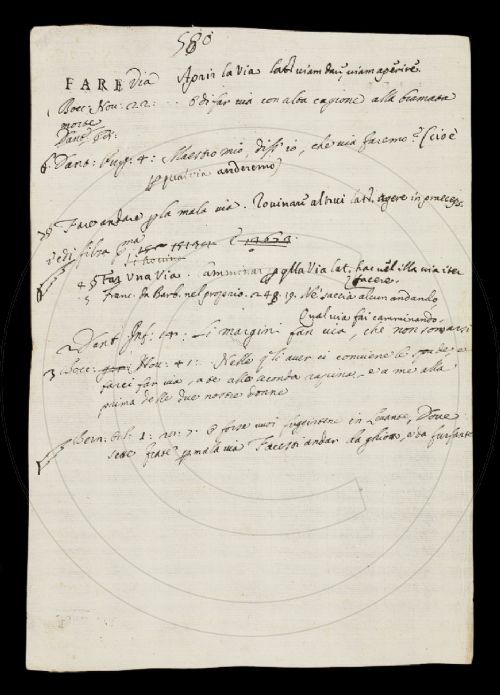 580
FARE Via Aprir la Via lat: viam dare, viam aperire.
1 Bocc: Nov: 22: o di far via con alta cagione alla bramata
morte
Dant: Par:
6. Dant: Purg: 4: Maestro mio, diss'io, che via faremo? (cioè
p qual via anderemo)
§ Fare andare p la mala via. Rovinare altrui lat. agere in praeceps.
vedi sopra
4 § Far Una Via. camminar p q̃lla Via lat. hac vel illa via iter
facere.
5 Franc. da Barb. nel proprio. 248. 19. Nè faccia alcun andando
Qual via fai camminando.
2 Dant. Inf: 14: Li margini fan via, che non son arsi
3 Bocc: Nov: 41: Nelle q̃li aver ci conviene le spade e
farci far via, a te alla seconda rapina, e a me alla
prima delle due nostre donne
Bern: Orl: 1: o forse vuoi fuggirtene in Levante, Dove
sette frate p mala via Facesti andar da ghiotto, e da furfante